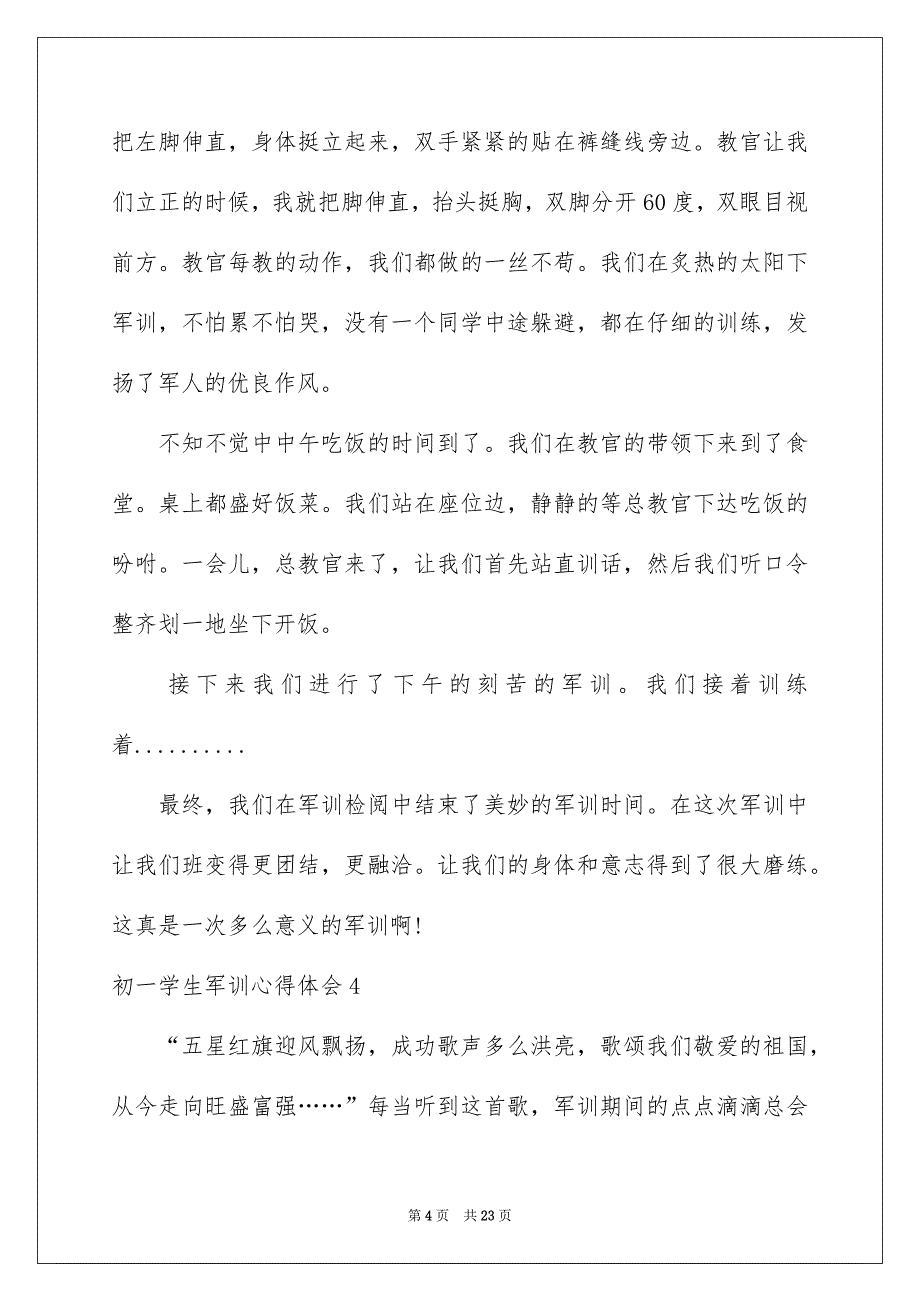 把左脚伸直，身体挺立起来，双手紧紧的贴在裤缝线旁边。教官让我
们立正的时候，我就把脚伸直，抬头挺胸，双脚分开 60 度，双眼目视
前方。教官每教的动作，我们都做的一丝不苟。我们在炙热的太阳下
军训，不怕累不怕哭，没有一个同学中途躲避，都在仔细的训练，发
扬了军人的优良作风。
不知不觉中中午吃饭的时间到了。我们在教官的带领下来到了食
堂。桌上都盛好饭菜。我们站在座位边，静静的等总教官下达吃饭的
吩咐。一会儿，总教官来了，让我们首先站直训话，然后我们听口令
整齐划一地坐下开饭。
接下来我们进行了下午的刻苦的军训。我们接着训练
着..........
最终，我们在军训检阅中结束了美妙的军训时间。在这次军训中
让我们班变得更团结，更融洽。让我们的身体和意志得到了很大磨练。
这真是一次多么意义的军训啊!
初一学生军训心得体会 4
“五星红旗迎风飘扬，成功歌声多么洪亮，歌颂我们敬爱的祖国，
从今走向旺盛富强……”每当听到这首歌，军训期间的点点滴滴总会
第 4 页 共 23 页